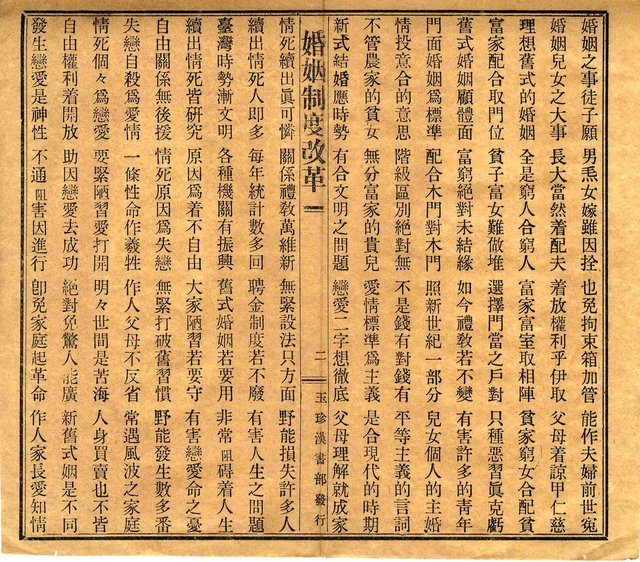 婚姻之事徒子願 男焏女嫁雖因拴 也免拘束箱加管 能作夫婦前世寃
婚姻兒女之大事 長大當然着配夫 着放權利乎伊取 父母着諒甲仁慈
理想舊式的婚姻 全是窮人合窮人 富家富室取相陣 貧家窮女合配貧
富家配合取門位 貧子富女難做堆 選擇門當之戶對 只種惡習眞克虧
舊式婚姻顧體面 富窮絕對未結緣 如今禮敎若不變 有害許多的靑年
門面婚姻爲標準 配合木門對木門 照新世紀一部分 兒女個人的主婚
情投意合的意思 階級區別絕對無 不是錢有對錢有 平等主義的言詞
不管農家的貧女 無分富家的貴兒 愛情標準爲主義 是合現代的時期
新式結婚應時勢 有合文明之問題 戀愛二字想徹底 父母理解就成家
婚姻制度改革 二 玉珍漢書部發行
情死續出眞可憐 關係禮敎萬維新 無緊設法只方面 野能損失許多人
續出情死人即多 每年統計數多回 聘金制度若不廢 有害人生之問題
臺灣時勢漸文明 各種機關有振興 舊式婚姻若要用 非常阻碍着人生
續出情死皆硏究 原因爲着不自由 大家陋習若要守 有害戀愛命之憂
自由關係無後援 情死原因爲失戀 無緊打破舊習慣 野能發生數多番
失戀自殺爲愛情 一條性命作犧牲 作人父母不反省 常遇風波之家庭
情死個々爲戀愛 要緊陋習愛打開 明々世間是苦海 人身買賣也不皆
自由權利着開放 助因戀愛去成功 絕對免驚人能廣 新舊式姻是不同
發生戀愛是神性 不通阻害因進行 卽免家庭起革命 作人家長愛知情